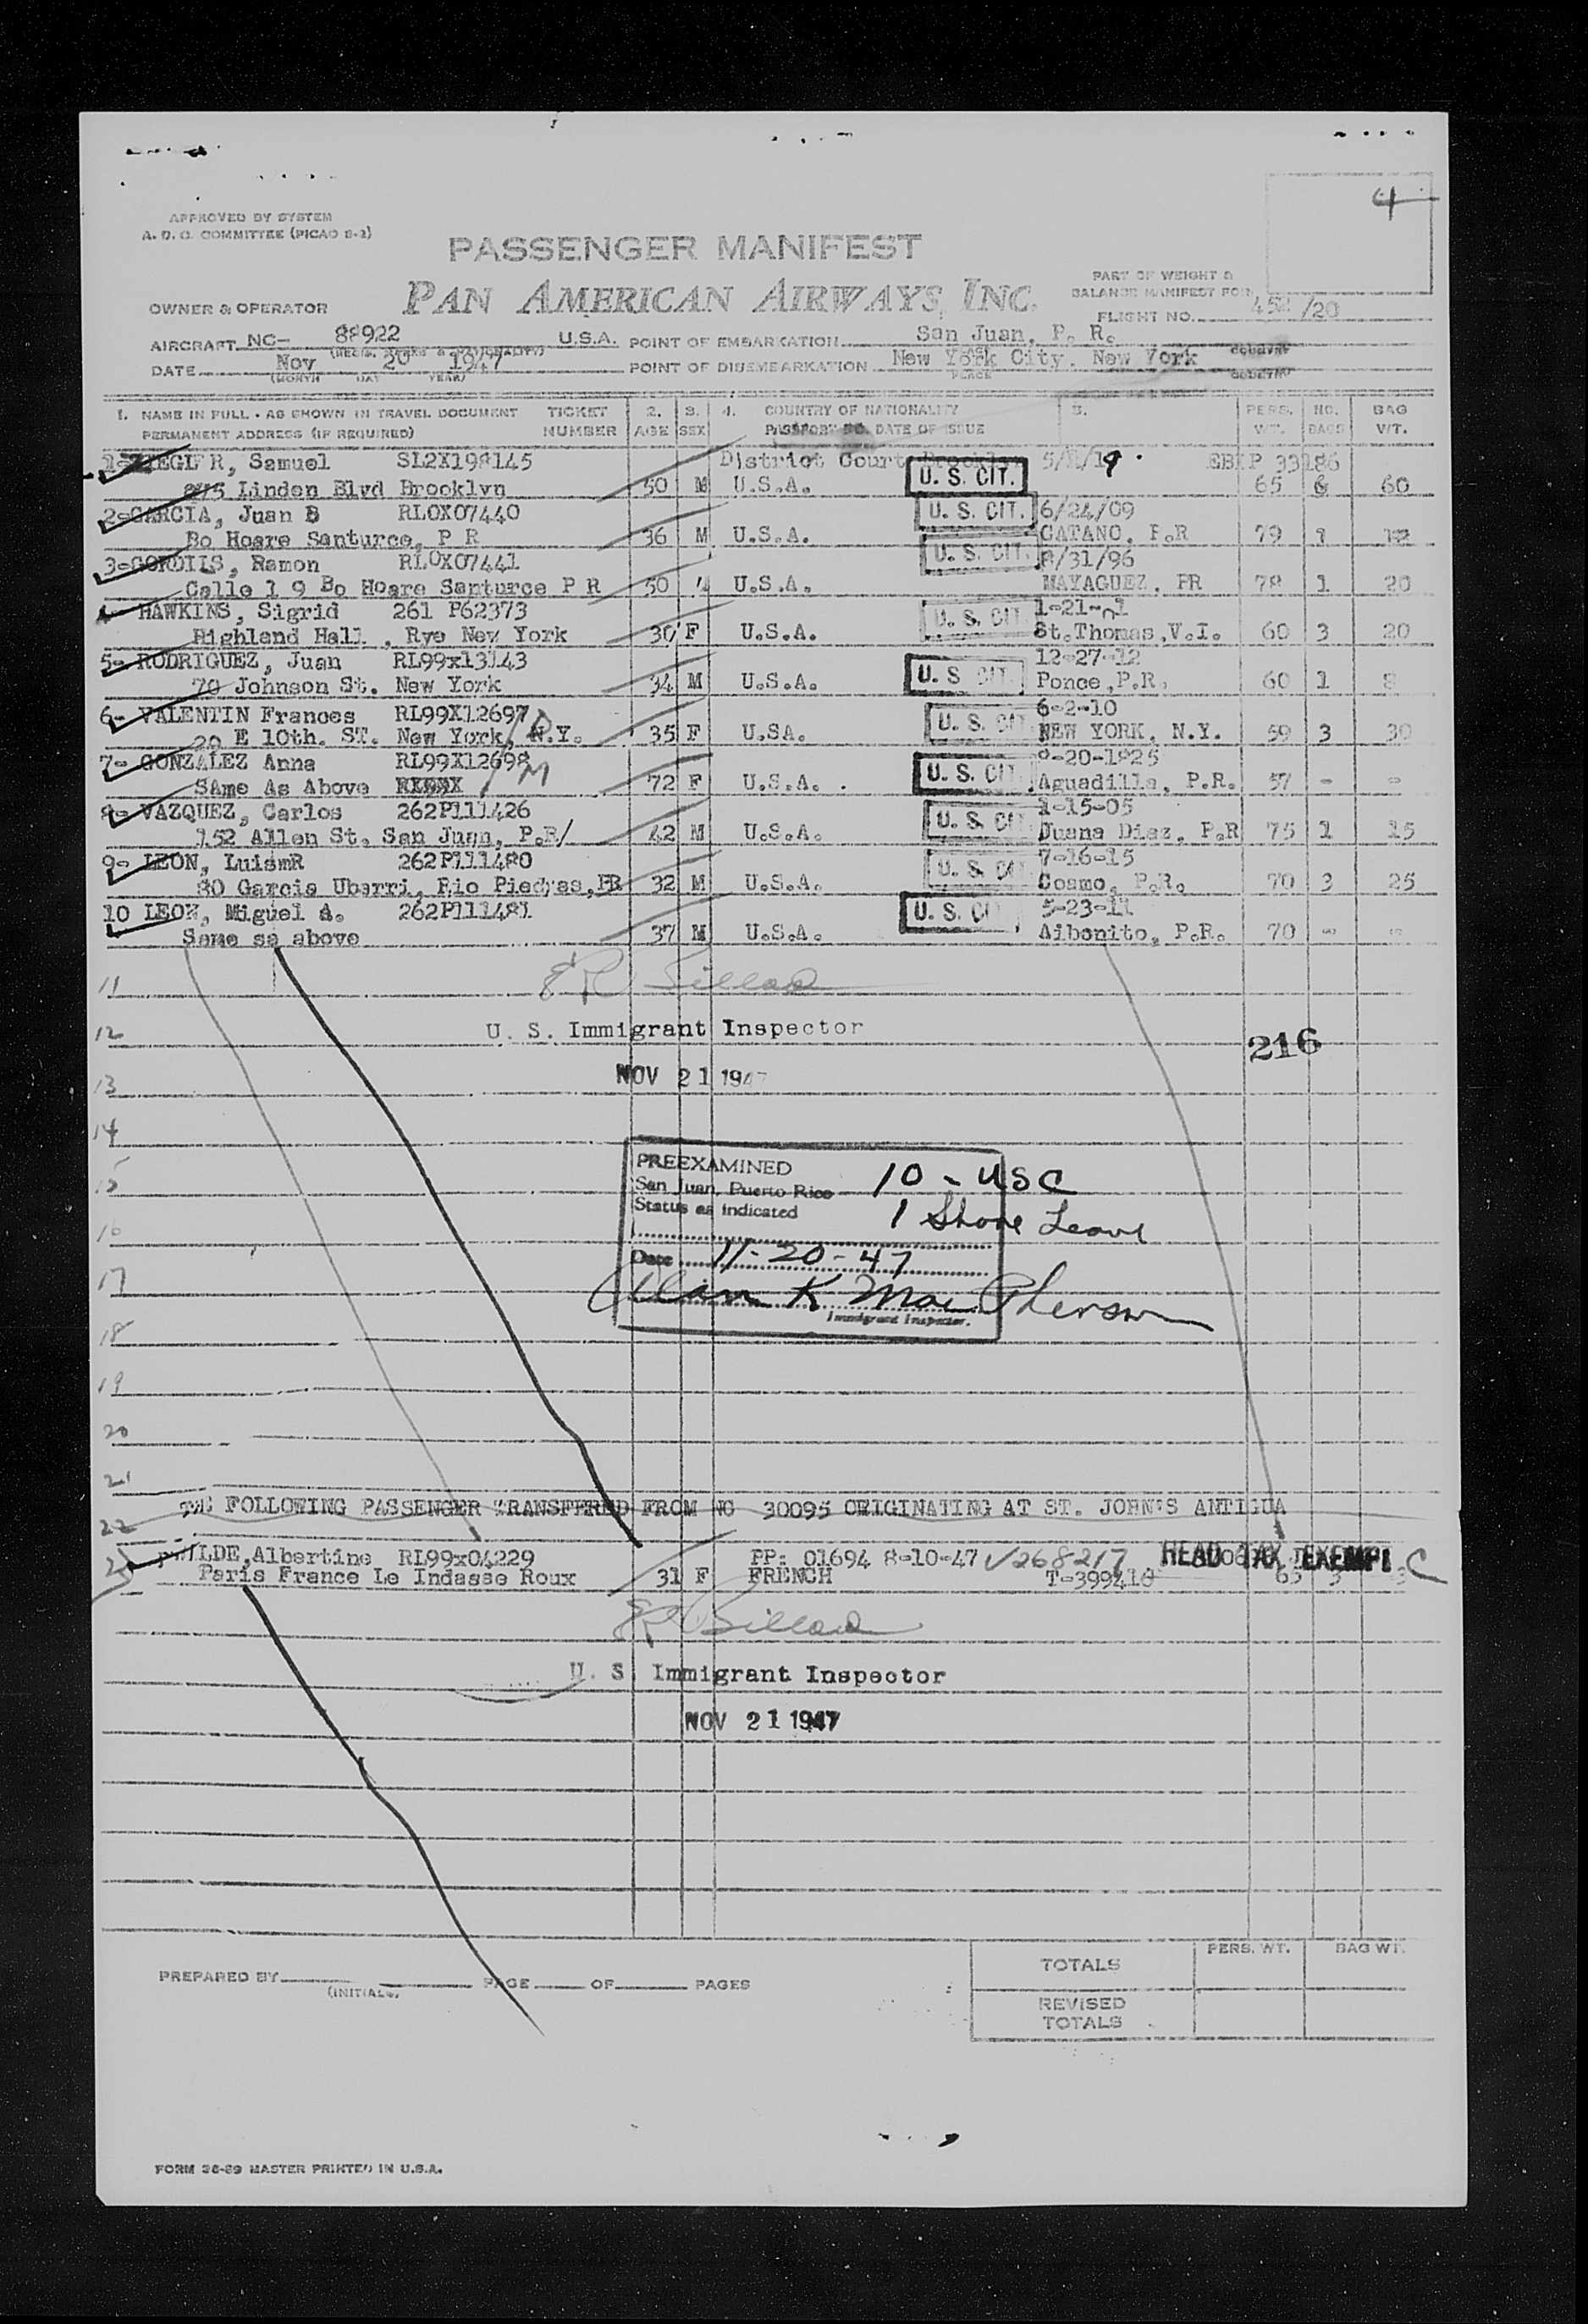 4
APPROVED BY SYSTEM
A. D. C. COMMITTEE (PICAO S-2)
PASSENGER MANIFEST
PART OF WEIGHT &
BALANCE MANIFEST FOR
OWNER & OPERATOR PAN AMERICAN AIRWAYS, INC.
FLIGHT NO. 452/20
AIRCRAFT NC- 88922 U.S.A. POINT OF EMBARKATION San Juan, P. R.
DATE Nov 20 1947 POINT OF DISEMBARKATION New York City. New York
(MONTH DAY YEAR) PLACE COUNTRY
1. NAME IN FULL - AS SHOWN IN TRAVEL DOCUMENT TICKET 2. 3. 4. COUNTRY OF NATIONALITY 5. PERS. NO. BAG
PERMANENT ADDRESS (IF REQUIRED) NUMBER AGE SEX PASSPORT NO. DATE OF ISSUE WT. BAGS WT.
Samuel SL2X198145 District Court EBEP 33186
Linden Blvd Brooklyn 50 M U.S.A. U. S. CIT. 65 60
2-GARCIA, Juan B RLOX07440 U. S. CIT. 6/24/09
Bo Hoare Santurce, P R 36 M U.S.A. CATANO, P.R 79 1
3- Ramon RLOX07441 U. S. CIT. 8/31/96
Calle 1 9 Bo Hoare Santurce P R 50 U.S.A. MAYAGUEZ, PR 78 1 20
4- HAWKINS, Sigrid 261 P62373 U. S. CIT
Highland Hall , Rye New York F U.S.A. St.Thomas,V.I. 60 3 20
5- RODRIGUEZ, Juan RL99x13143 12-27-12
70 Johnson St. New York 34 M U.S.A. U. S CIT. Ponce,P.R. 60 1 8
6- VALENTIN Frances RL99X12697 6-2-10
20 E 10th. ST. New York, N.Y. 35 F U.SA. U. S. CIT NEW YORK, N.Y. 59 3 30
7- GONZALEZ Anna RL99X12698
SAme As Above 72 F U.S.A. U. S. CIT Aguadilla, P.R. 57 - -
8- VAZQUEZ, Carlos 262P111426 1-15-05
152 Allen St. San Juan, P.R/ 42 M U.S.A. U. S. CIT Juana Diaz, P.R 75 1 15
9- LEON, LuismR 262P111480 7-16-15
80 Garcia Ubarri, Rio Piedras,PR 32 M U.S.A. U. S. CIT Coamo, P.R. 70 3 25
10 LEON, Miguel A. 262P111481 U. S. CI 5-23-11
Same sa above 37 M U.S.A. Aibonito, P.R. 70 - -
11
12 U. S. Immigrant Inspector 216
13 NOV 21 1947
14
15 PREEXAMINED
San Juan, Puerto Rico 10 - USC
Status as indicated 1 Shore Leave
16
Date 11-20-47
17 Allan K MacPherson
Immigrant Inspector.
18
19
20
21
22 THE FOLLOWING PASSENGER TRANSFFRED FROM NC 30095 ORIGINATING AT ST. JOHN'S ANTIGUA
Albertine RL99x04229 PP: 01694 8-10-47 HEAD TAX EXEMPT C
Paris France Le Indasse Roux 31 F FRENCH T-399410 65 3
U. S. Immigrant Inspector
NOV 21 1947
PREPARED BY (INITIALS) PAGE OF PAGES
TOTALS PERS. WT. BAG WT.
REVISED
TOTALS
FORM 36-89 MASTER PRINTED IN U.S.A.